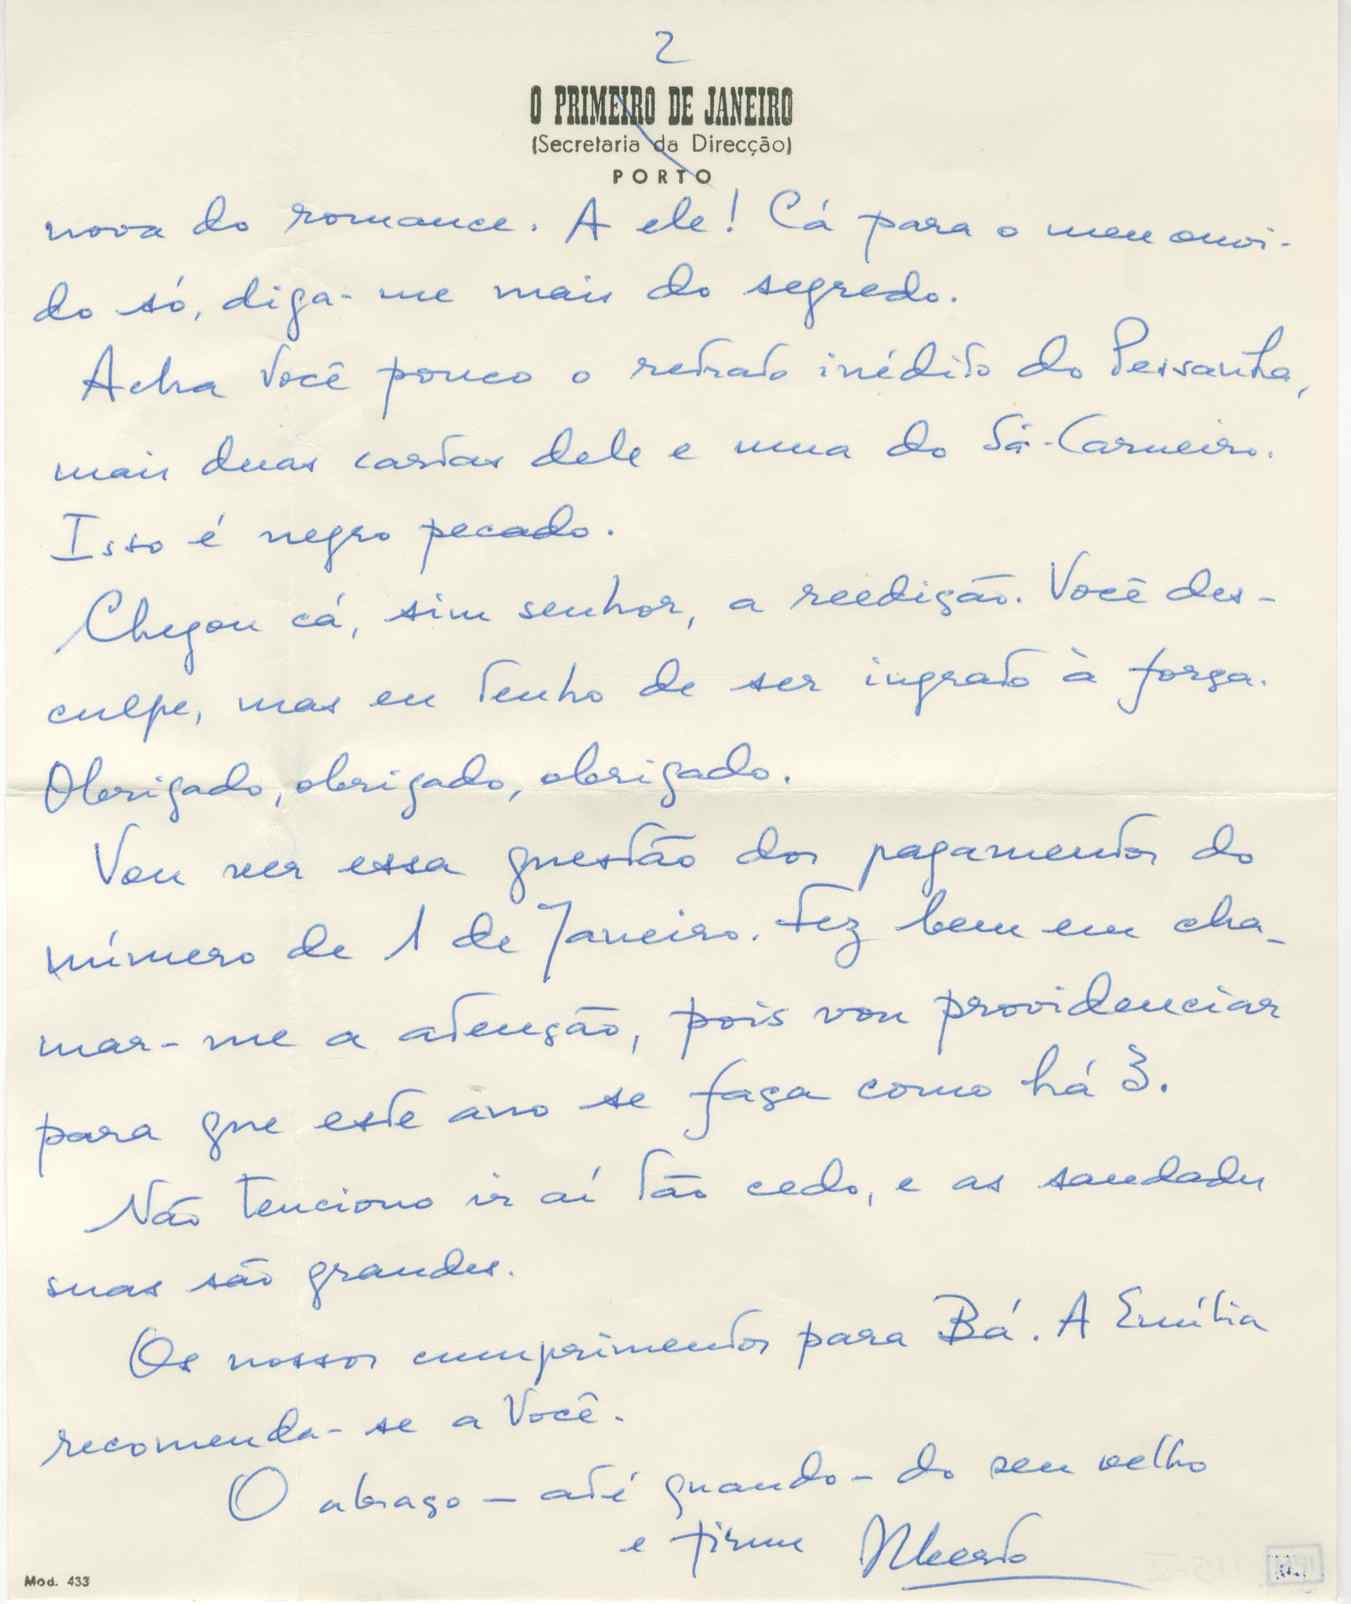 2
O PRIMEIRO DE JANEIRO
(Secretaria da Direcção)
PORTO
nova do romance. A ele! Cá para o meu ouvi-
do só, diga-me mais do segredo.
Acha Você pouco o retrato inédito do Pessanha,
mais duas cartas dele e uma do Sá-Carneiro.
Isso é negro pecado.
Chegou cá, sim senhor, a reedição. Você des-
culpe, mas eu tenho de ser ingrato à força.
Obrigado, obrigado, obrigado.
Vou ver essa questão dos pagamentos do
número de 1 de Janeiro. Fez bem em cha-
mar-me a atenção, pois vou providenciar
para que este ano se faça como há 3.
Não tenciono ir aí tão cedo, e as saudades
suas são grandes.
Os nossos cumprimentos para Bá. A Emília
recomenda-se a Você.
O abraço - até quando - do seu velho
e firme
Mod. 433